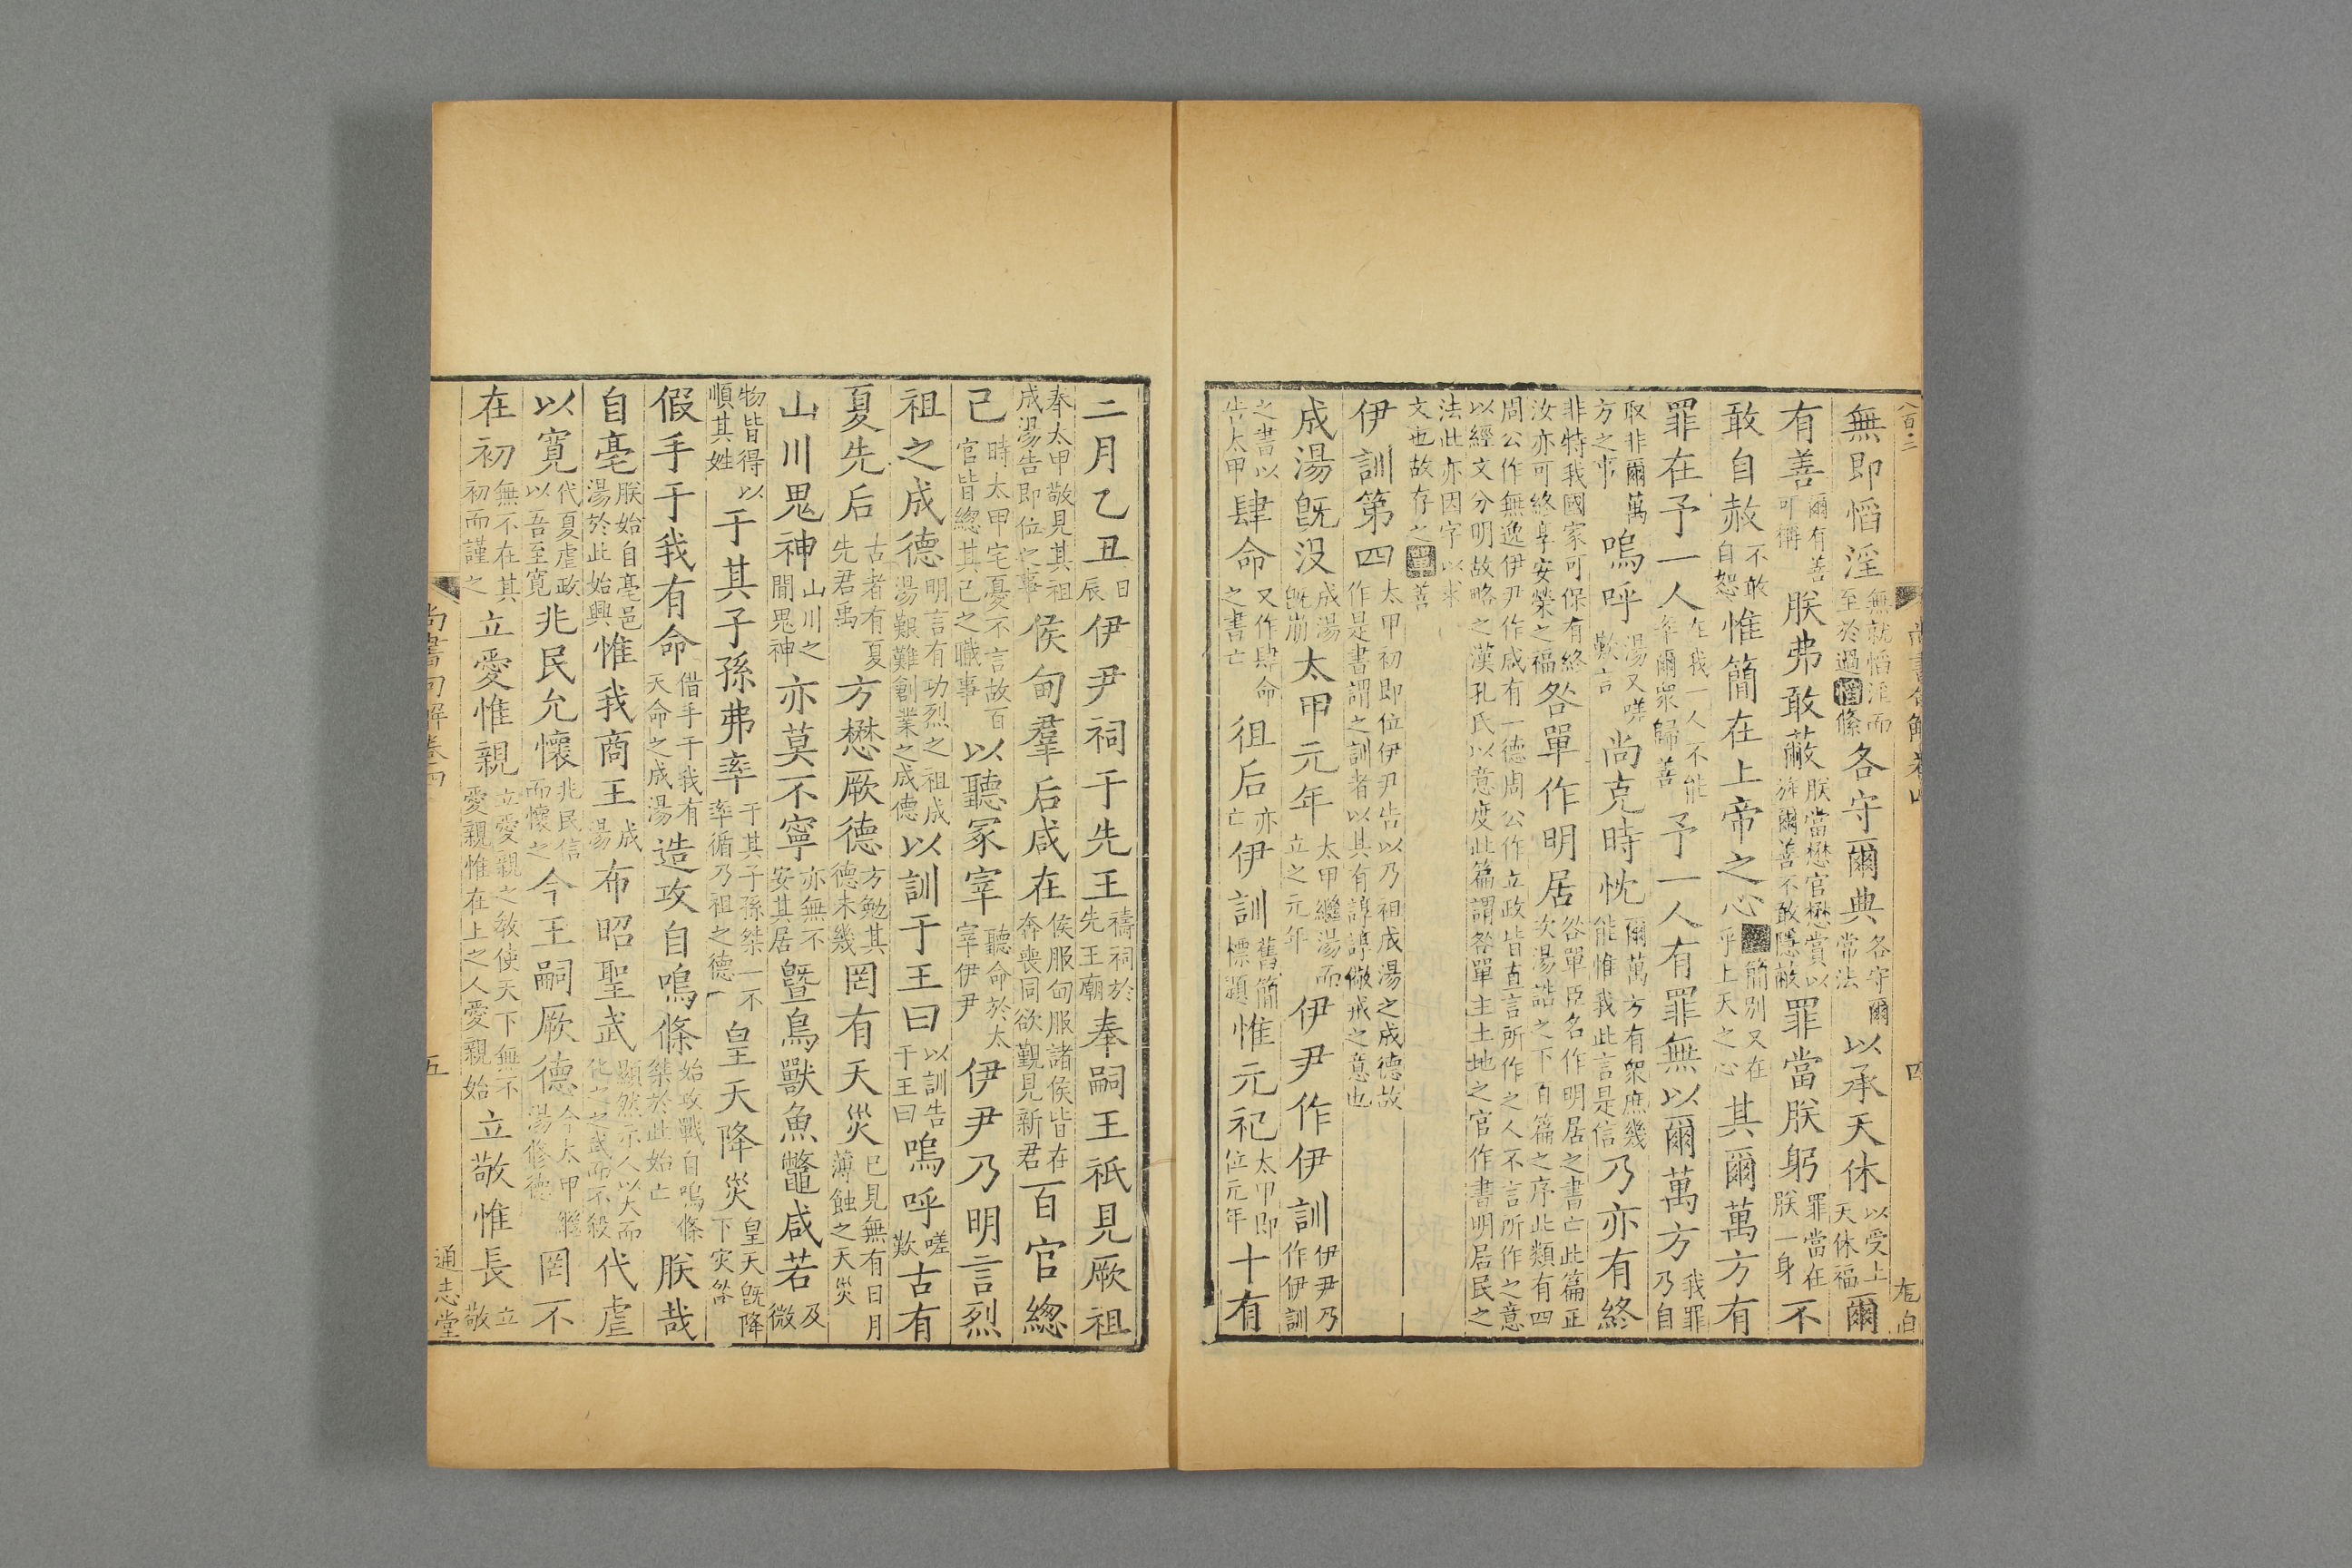 八百二 尚書句解卷四 四
無即慆淫無就慆淫而至於過慆絛各守爾典各守爾常法以承天休以受上天休福爾
有善爾有善可稱朕弗敢蔽朕當懋官懋賞以旌爾善不敢隱蔽罪當朕躬罪當在朕一身不
敢自赦不敢自恕惟簡在上帝之心簡別又在乎上天之心其爾萬方有
罪在予一人在我一人不能率爾衆歸善予一人有罪無以爾萬方我罪乃自
取非爾萬方之事嗚呼湯又嗟歎言尚克時忱爾萬方有衆庶幾能惟我此言是信乃亦有終
非特我國家可保有終汝亦可終享安榮之福咎單作明居咎單臣名作明居之書亡此篇正次湯誥之下自篇之序此類有四
周公作無逸伊尹作咸有一德周公作立政皆直言所作之人不言所作之意以經文分明故略之漢孔氏以意度此篇謂咎單主土地之官作書明居民之
法此亦因字以求文也故存之單善
伊訓第四太甲初即位伊尹告以乃祖成湯之成德故作是書謂之訓者以其有諄諄儆戒之意也
成湯旣没成湯旣崩太甲元年太甲繼湯而立之元年伊尹作伊訓伊尹乃作伊訓
之書以告太甲肆命又作肆命之書亡徂后亦亡伊訓舊簡標題惟元祀太甲即位元年十有
二月乙丑日辰伊尹祠于先王禱祠於先王廟奉嗣王祗見厥祖
奉太甲敬見其祖成湯告即位之事侯甸羣后咸在侯服甸服諸侯皆在奔喪同欲覲見新君百官緫
己時太甲宅憂不言故百官皆緫其己之職事以聽冢宰聽命於太宰伊尹伊尹乃明言烈
祖之成德明言有功烈之祖成湯艱難創業之成德以訓于王曰以訓告于王曰嗚呼嗟歎古有
夏先后古者有夏先君禹方懋厥德方勉其德未幾罔有天災已見無有日月薄蝕之天災
山川鬼神山川之間鬼神亦莫不寧亦無不安其居曁鳥獸魚鼈咸若及微
物皆得以順其姓于其子孫弗率于其子孫桀一不率循乃祖之德皇天降災皇天旣降下灾咎
假手于我有命借手于我有天命之成湯造攻自鳴條始攻戰自鳴條桀於此始亡朕哉
自亳朕始自亳邑湯於此始興惟我商王成湯布昭聖武顯然示人以大而化之之武而不殺代虐
以寬代夏虐政以吾至寬兆民允懷兆民信而懷之今王嗣厥德今太甲繼湯修德罔不
在初無不在其初而謹之立愛惟親立愛親之教使天下無不愛親惟在上之人愛親始立敬惟長立敬
尚書句解卷四 五 通志堂